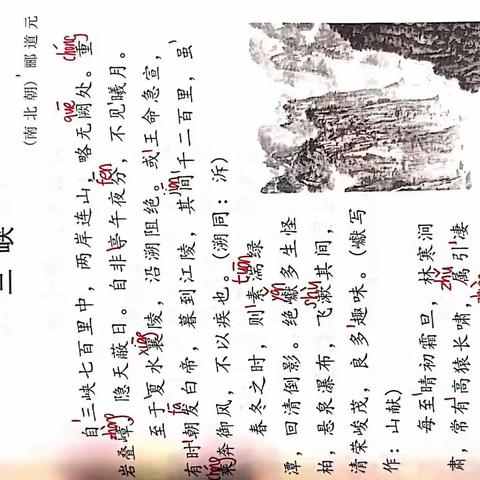 三峡
(南北朝) 郦道元
chóng
quē
自三峡七百里中，两岸连山，略无阙处。重
zhàng
fēn
岩叠嶂，隐天蔽日。自非亭午夜分，不见曦月。
至于夏水襄陵，沿溯阻绝。或王命急宣，
有时朝发白帝，暮到江陵，其间千二百里，虽
乘奔御风，不以疾也。(溯同：泝)
tuān
春冬之时，则素湍绿
潭，回清倒影。绝巘多生怪
柏，悬泉瀑布，飞漱其间，
清荣峻茂，良多趣味。(巘写
作：山献)
每至晴初霜旦，林寒涧
zhǔ
肃，常有高猿长啸，属引凄